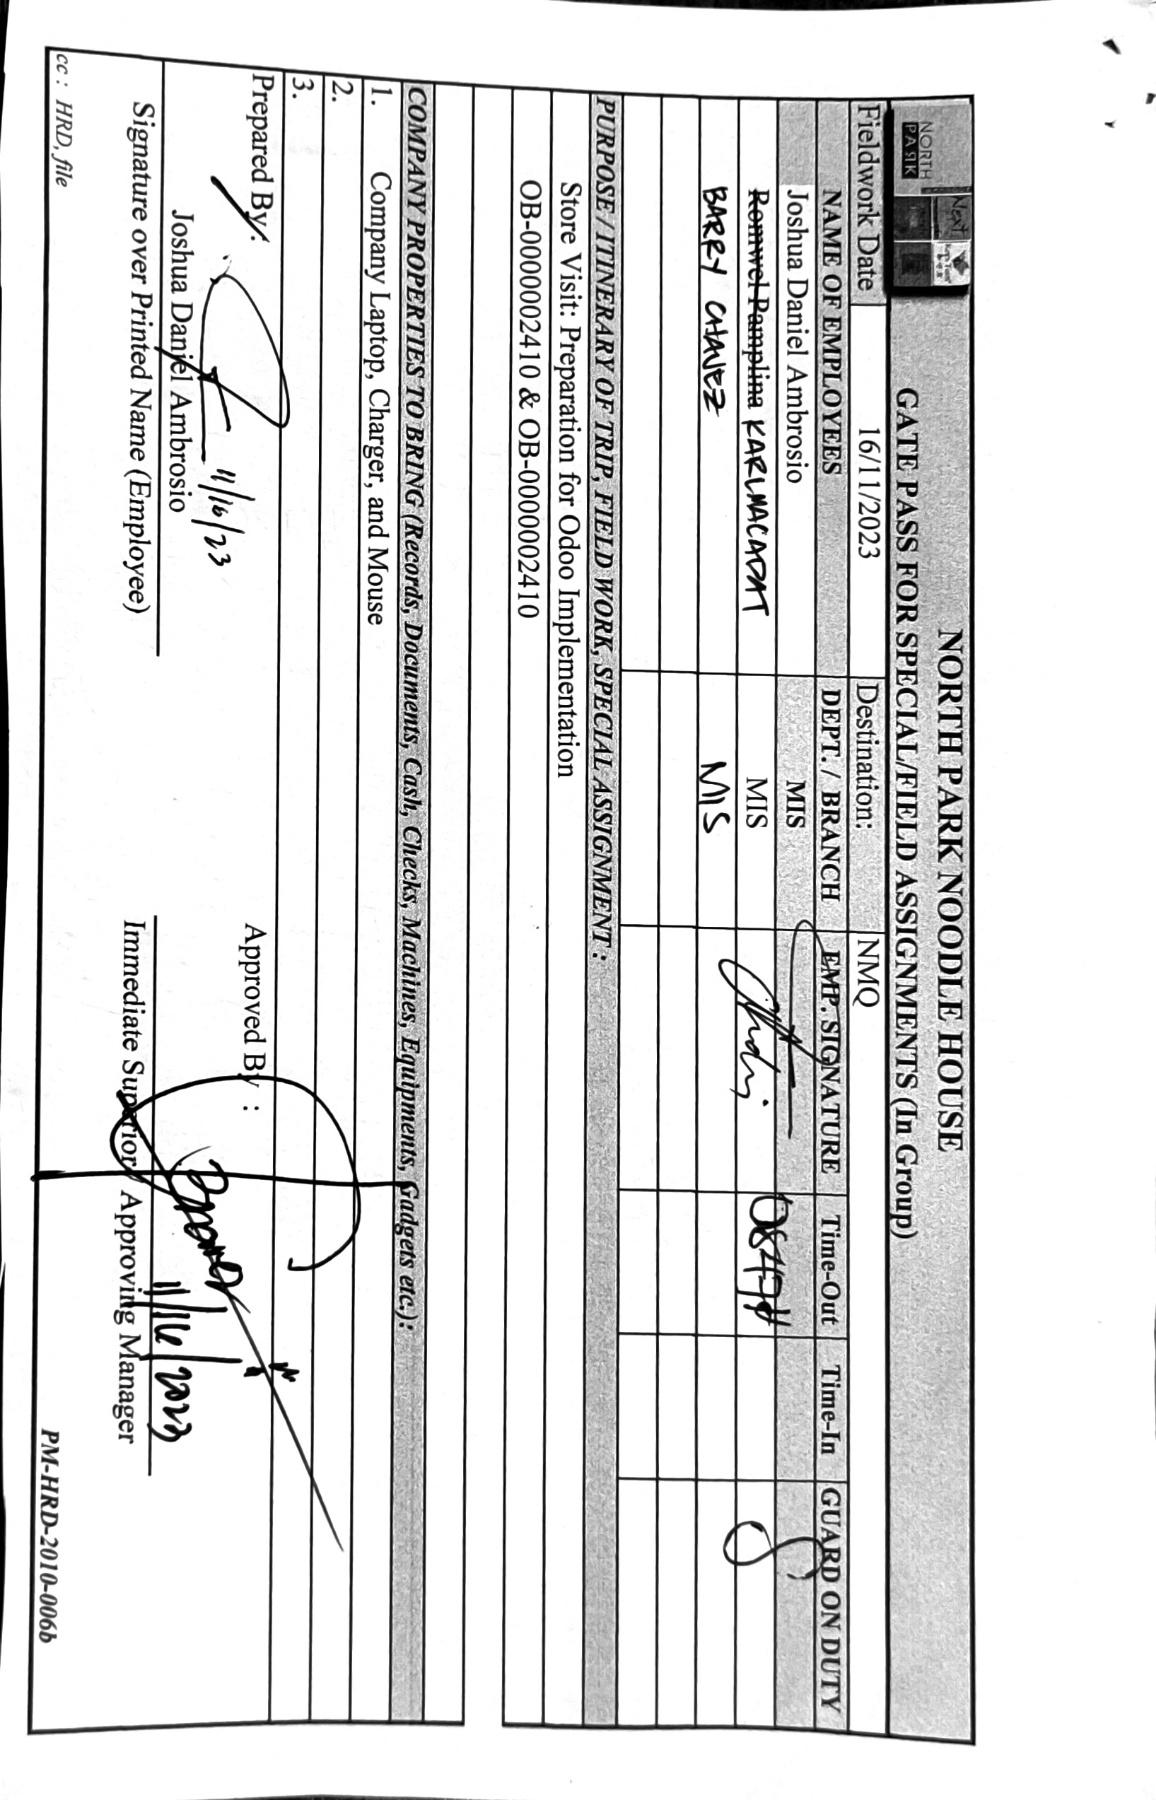 Next
NORTH
PARK
NORTH PARK NOODLE HOUSE
GATE PASS FOR SPECIAL/FIELD ASSIGNMENTS (In Group)
Fieldwork Date 16/11/2023 Destination: NMQ
NAME OF EMPLOYEES DEPT. / BRANCH EMP. SIGNATURE Time-Out Time-In GUARD ON DUTY
Joshua Daniel Ambrosio MIS
Romwel Pamplina KARLMACADAT MIS 0847H
BARRY CHAVEZ MIS
PURPOSE / ITINERARY OF TRIP, FIELD WORK, SPECIAL ASSIGNMENT :
Store Visit: Preparation for Odoo Implementation
OB-0000002410 & OB-0000002410
COMPANY PROPERTIES TO BRING (Records, Documents, Cash, Checks, Machines, Equipments, Gadgets etc.):
1. Company Laptop, Charger, and Mouse
2.
3.
Prepared By: Approved By :
11/16/23
11/16/2023
Joshua Daniel Ambrosio
Signature over Printed Name (Employee) Immediate Superior/ Approving Manager
cc : HRD, file
PM-HRD-2010-006b